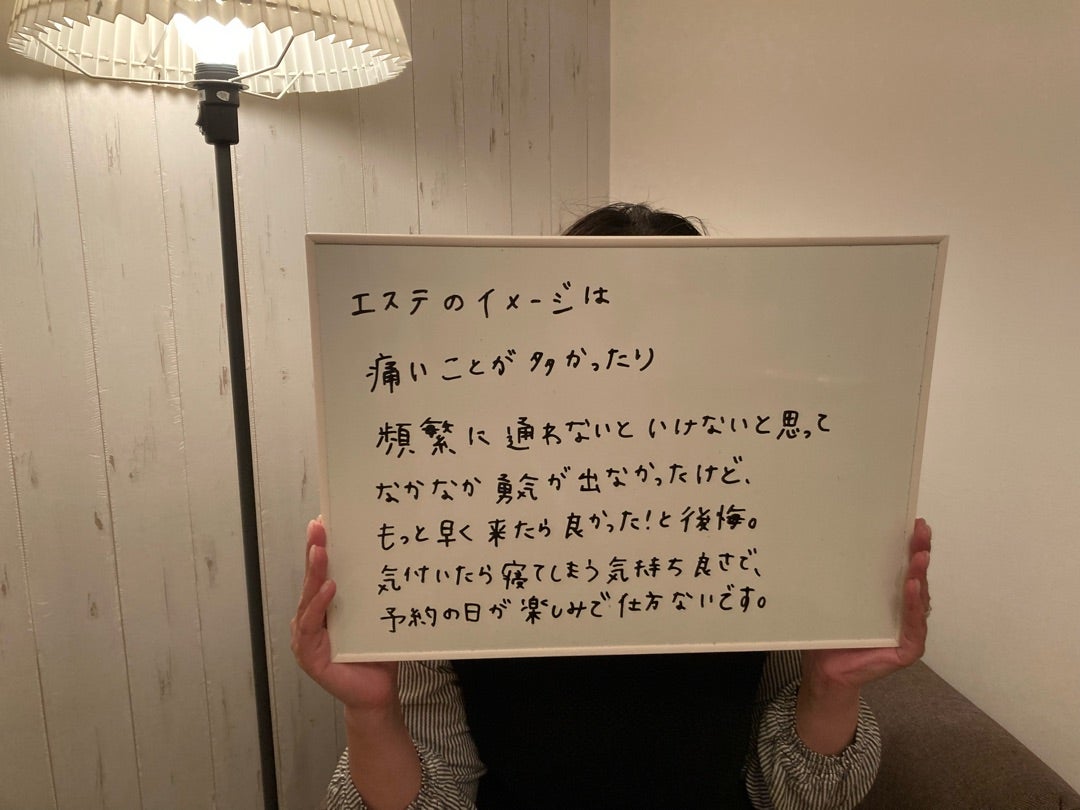 エステのイメージは
痛いことが多かったり
頻繁に通わないといけないと思って
なかなか勇気が出なかったけど、
もっと早く来たら良かった!と後悔。
気付いたら寝てしまう気持ち良さで、
予約の日が楽しみで仕方ないです。